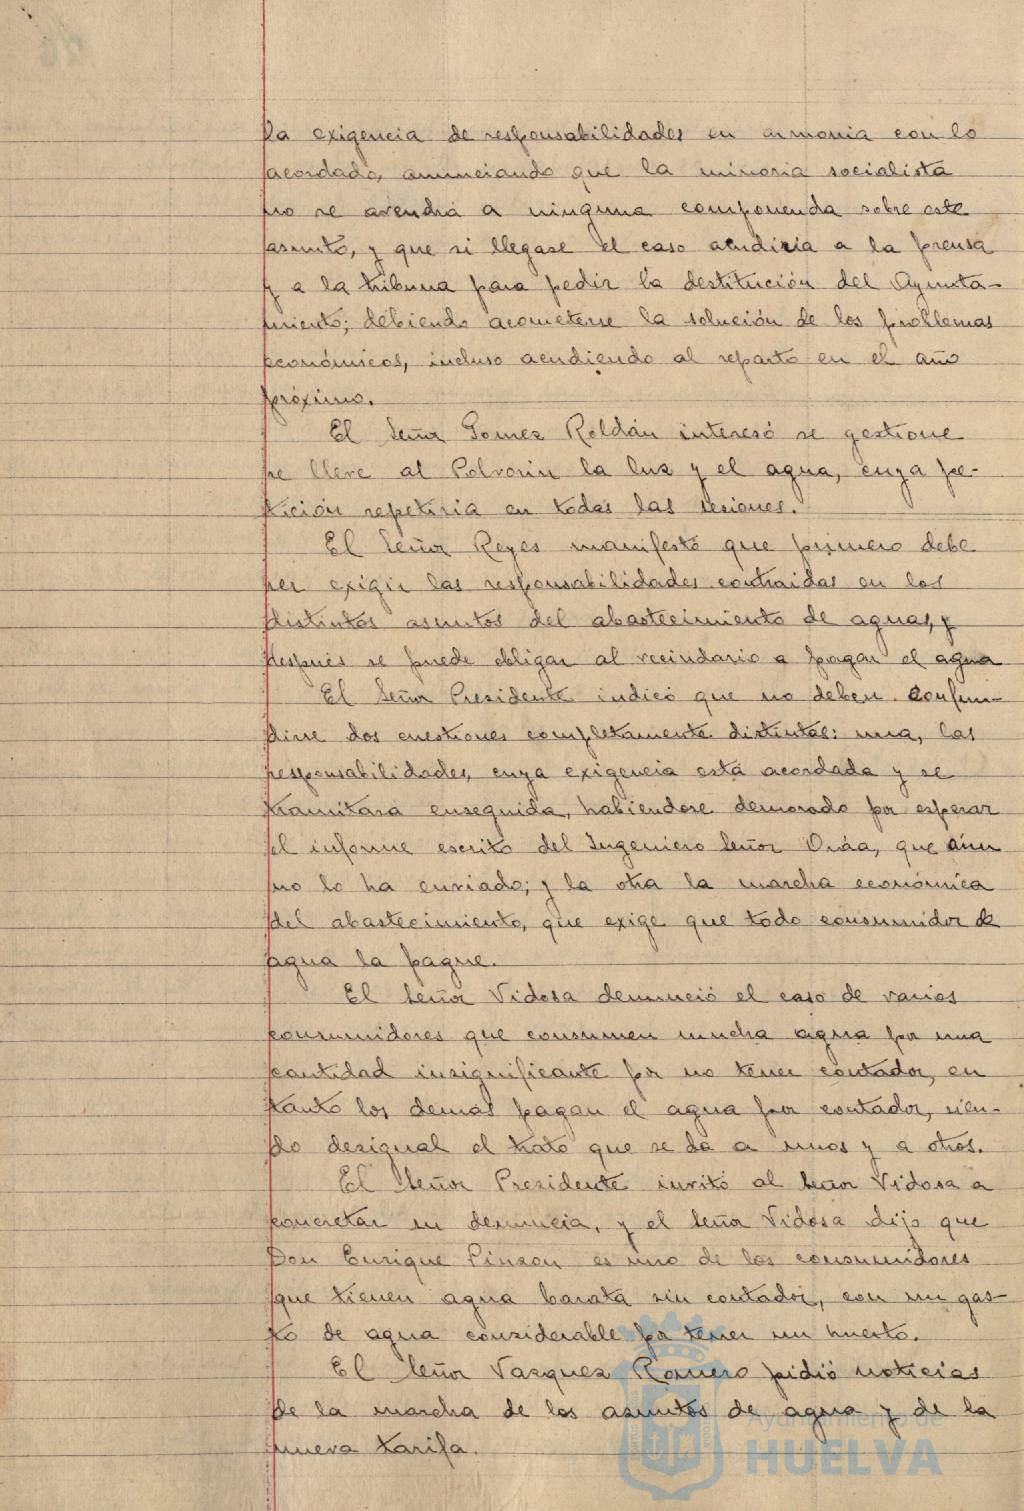 la exigencia de responsabilidades en armonia con lo
acordado, anunciando que la minoria socialista
no se avendrá a ninguna componenda sobre este
asunto, y que si llegase el caso acudiria a la prensa
y a la tribuna para pedir la destitución del Ayunta-
miento; debiendo acometerse la solución de los problemas
económicos, incluso acudiendo al reparto en el año
próximo.
El Señor Gomez Roldán interesó se gestione
se lleve al Polvorin la luz y el agua, cuya pe-
tición repetiria en todas las sesiones.
El Señor Reyes manifestó que primero debe
ser exigir las responsabilidades contraidas en los
distintos asuntos del abastecimiento de aguas, y
después se puede obligar al vecindario a pagar el agua
El Señor Presidente indicó que no deben confun-
dirse dos cuestiones completamente distintas: una, las
responsabilidades, cuya exigencia está acordada y se
tramitará enseguida, habiendose demorado por esperar
el informe escrito del Ingeniero Señor Oráa, que aún
no lo ha enviado; y la otra la marcha económica
del abastecimiento, que exige que todo consumidor de
agua la pague.
El Señor Vidosa denunció el caso de varios
consumidores que consumen mucha agua por una
cantidad insignificante por no tener contador, en
tanto los demás pagan el agua por contador, sien-
do desigual el trato que se da a unos y a otros.
El Señor Presidente invitó al Señor Vidosa a
concretar su denuncia, y el Señor Vidosa dijo que
Don Enrique Pinzon es uno de los consumidores
que tienen agua barata sin contador, con un gas-
to de agua considerable por tener un huerto.
El Señor Vazquez Romero pidió noticias
de la marcha de los asuntos de agua y de la
nueva tarifa.
Ayuntamiento de
HUELVA